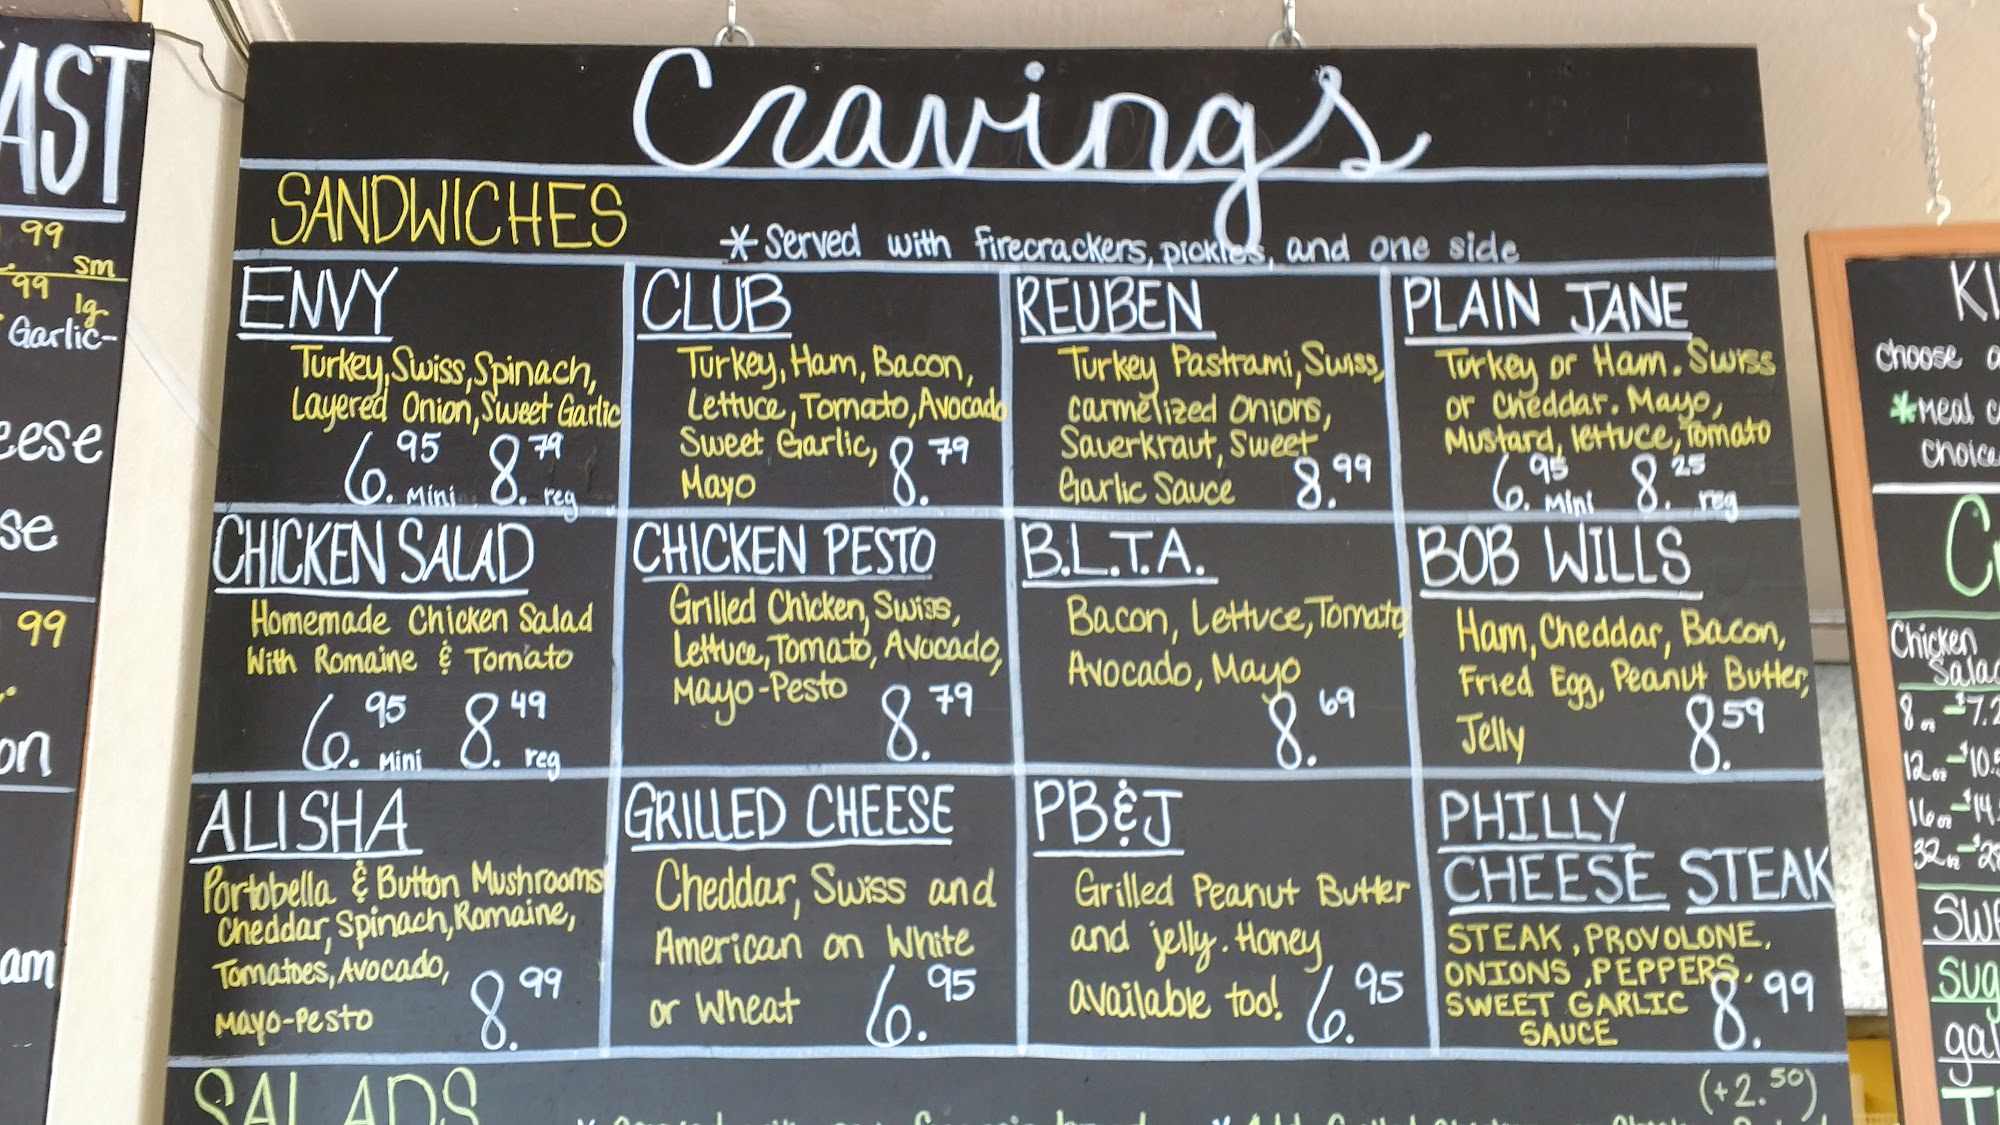 Cravings
SANDWICHES
*Served with firecrackers, pickles, and one side
ENVY
Turkey, Swiss, Spinach,
Layered Onion, Sweet Garlic
6.95 Mini 8.79 reg
CLUB
Turkey, Ham, Bacon,
Lettuce, Tomato, Avocado
Sweet Garlic,
Mayo 8.79
REUBEN
Turkey Pastrami, Swiss,
carmelized Onions,
Sauerkraut, Sweet
Garlic Sauce 8.99
PLAIN JANE
Turkey or Ham. Swiss
or Cheddar. Mayo,
Mustard, lettuce, Tomato
6.95 Mini 8.25 reg
CHICKEN SALAD
Homemade Chicken Salad
With Romaine & Tomato
6.95 Mini 8.49 reg
CHICKEN PESTO
Grilled Chicken, Swiss,
Lettuce, Tomato, Avocado,
Mayo-Pesto 8.79
B.L.T.A.
Bacon, Lettuce, Tomato
Avocado, Mayo
8.69
BOB WILLS
Ham, Cheddar, Bacon,
Fried Egg, Peanut Butter,
Jelly 8.59
ALISHA
Portobella & Button Mushrooms
Cheddar, Spinach, Romaine,
Tomatoes, Avocado,
Mayo-Pesto 8.99
GRILLED CHEESE
Cheddar, Swiss and
American on White
or Wheat 6.95
PB&J
Grilled Peanut Butter
and jelly. Honey
available too! 6.95
PHILLY
CHEESE STEAK
STEAK, PROVOLONE,
ONIONS, PEPPERS,
SWEET GARLIC
SAUCE 8.99
SALADS
(+2.50)
AST
99
sm
99
lg
Garlic-
eese
se
99
on
am
choose
*Meal
Choice
Chicken
Salad
8 oz
12 oz
16 oz
32 oz